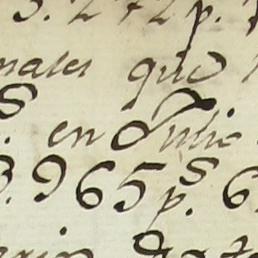 3. 272 p.
nales que
s. en Julio
3. 965 p.s 6